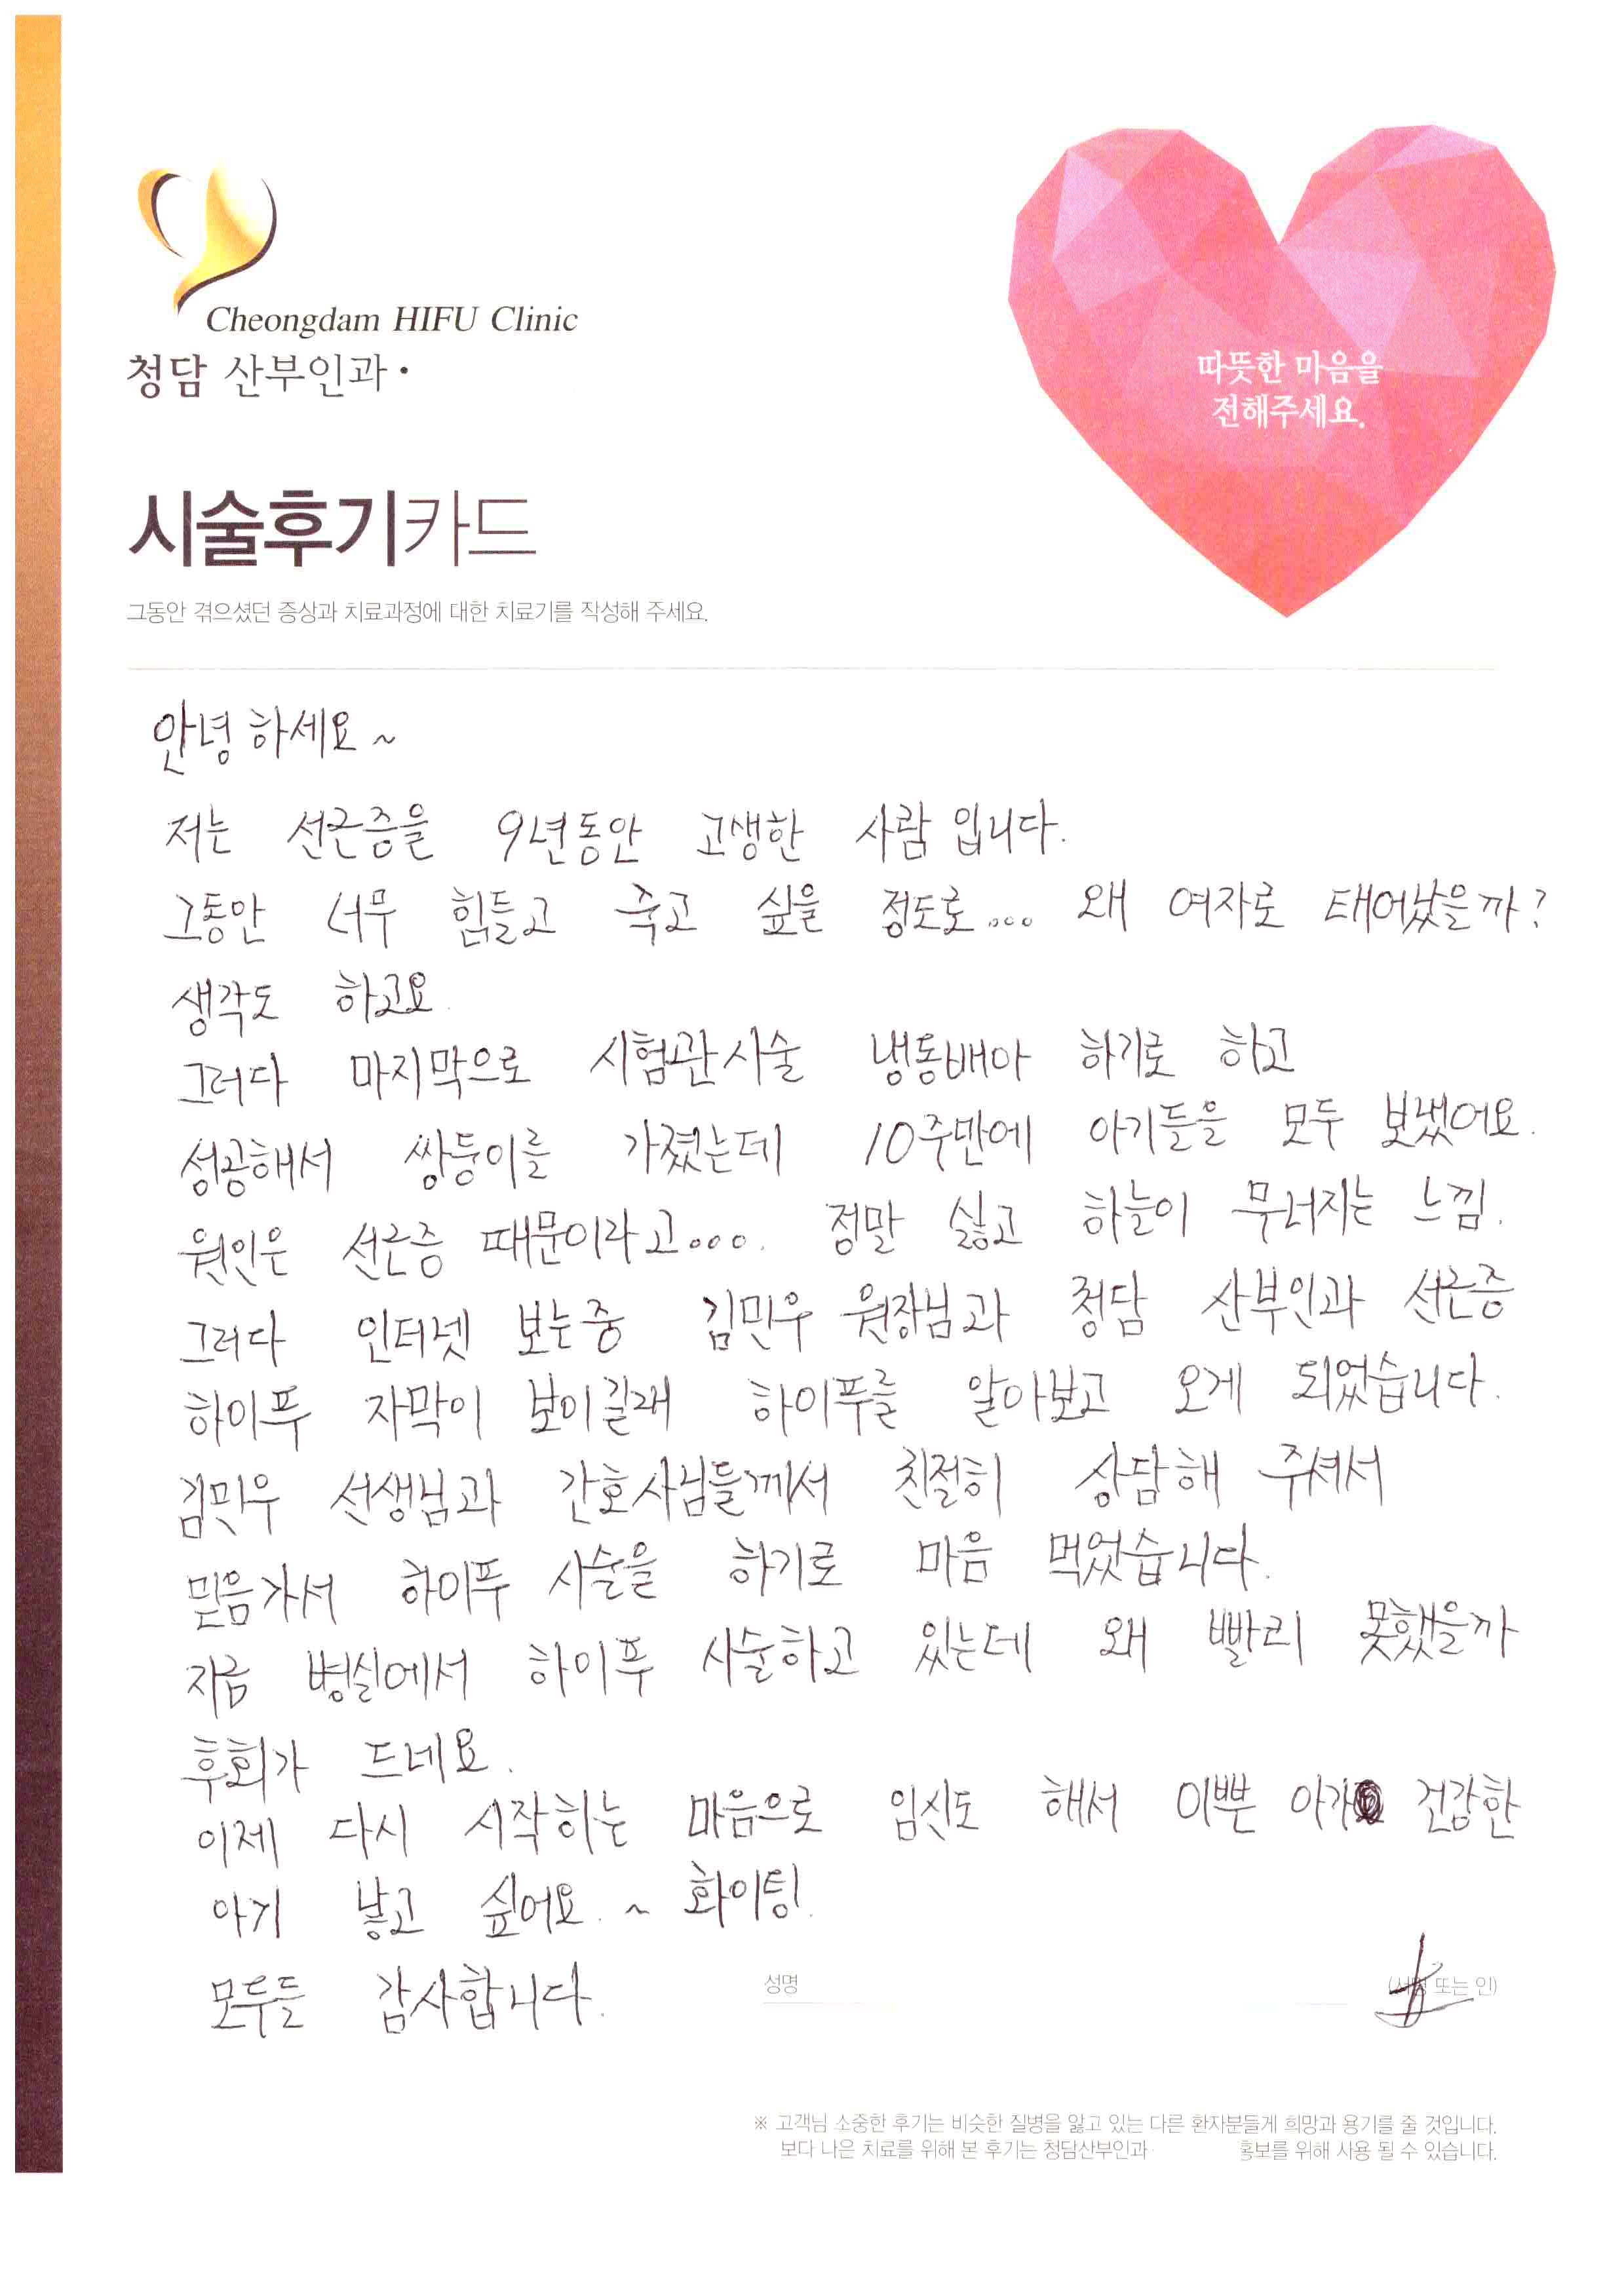 Cheongdam HIFU Clinic
청담 산부인과·
따뜻한 마음을
전해주세요.
시술후기카드
그동안 겪으셨던 증상과 치료과정에 대한 치료기를 작성해 주세요.
안녕하세요~
저는 선근증을 9년동안 고생한 사람 입니다.
그동안 너무 힘들고 죽고 싶을 정도로... 왜 여자로 태어났을까?
생각도 하고요.
그러다 마지막으로 시험관시술 냉동배아 하기로 하고
성공해서 쌍둥이를 가졌는데 10주만에 아기들을 모두 보냈어요.
원인은 선근증 때문이라고.... 정말 싫고 하늘이 무너지는 느낌.
그러다 인터넷 보는중 김민우 원장님과 청담 산부인과 선근증
하이푸 자막이 보이길래 하이푸를 알아보고 오게 되었습니다.
김민우 선생님과 간호사님들께서 친절히 상담해 주셔서
믿음가서 하이푸 시술을 하기로 마음 먹었습니다.
지금 병실에서 하이푸 시술하고 있는데 왜 빨리 못했을까
후회가 드네요.
이제 다시 시작하는 마음으로 임신도 해서 이쁜 아가 건강한
아기 낳고 싶어요.~ 화이팅!
모두들 감사합니다.
성명
(서명 또는 인)
※ 고객님 소중한 후기는 비슷한 질병을 앓고 있는 다른 환자분들게 희망과 용기를 줄 것입니다.
보다 나은 치료를 위해 본 후기는 청담산부인과 홍보를 위해 사용 될 수 있습니다.